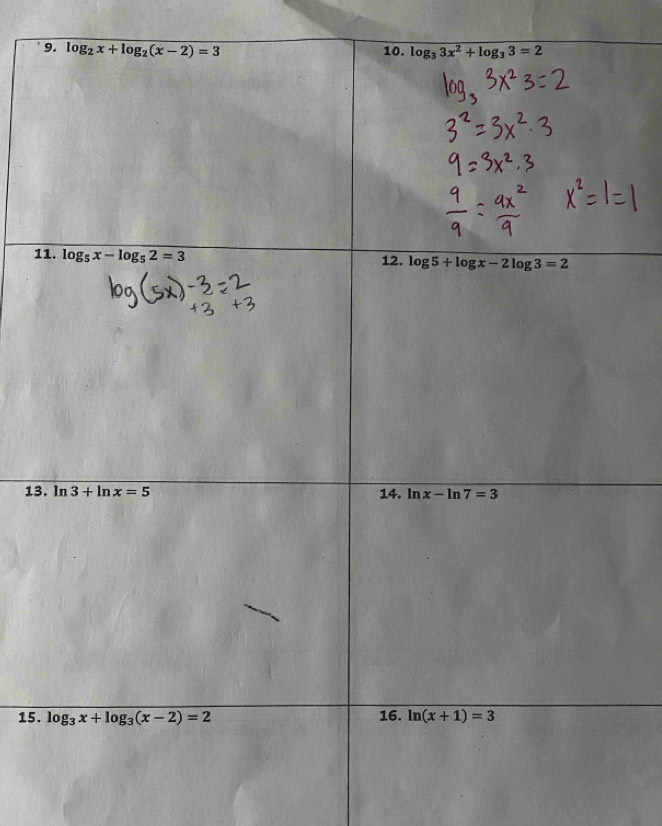 9. log₂ x + log₂(x − 2) = 3
10. log₃ 3x² + log₃ 3 = 2
log₃ 3x² 3 = 2
3² = 3x² · 3
9 = 3x² · 3
9/9 = 9x²/9 x² = 1 = 1
11. log₅ x − log₅ 2 = 3
log(5x) − 3 = 2
+3 +3
12. log 5 + log x − 2 log 3 = 2
13. ln 3 + ln x = 5
14. ln x − ln 7 = 3
15. log₃ x + log₃(x − 2) = 2
16. ln(x + 1) = 3